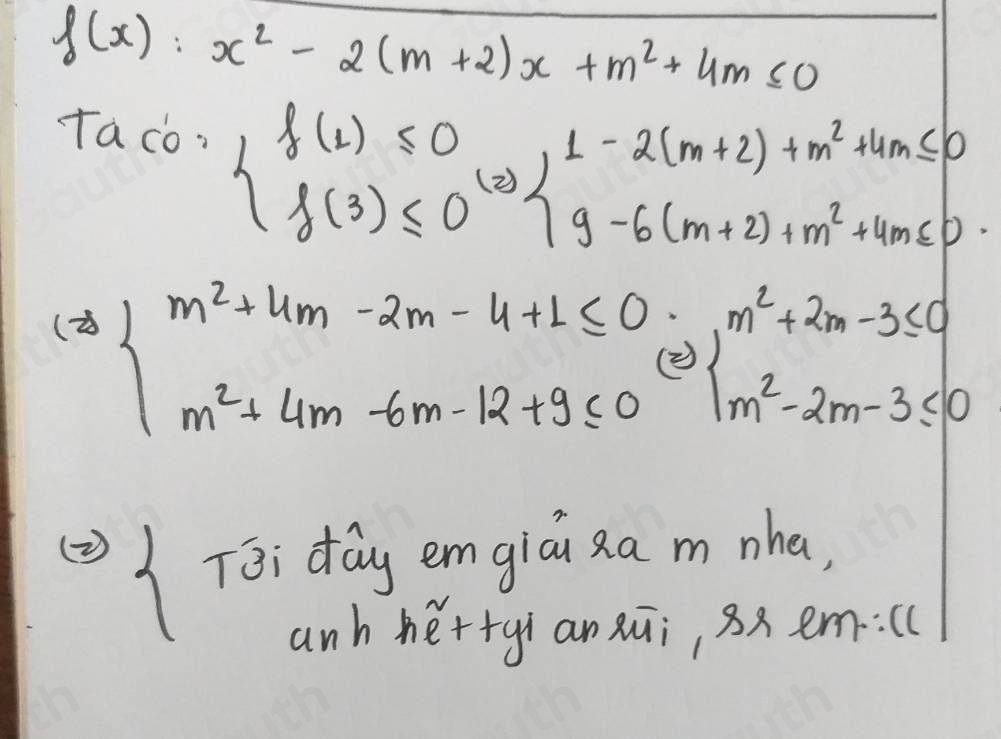 f(x) : x² - 2(m+2)x + m² + 4m ≤ 0
Ta có: { f(1) ≤ 0 (=) { 1 - 2(m+2) + m² + 4m ≤ 0
f(3) ≤ 0 9 - 6(m+2) + m² + 4m ≤ 0.
(=) { m² + 4m - 2m - 4 + 1 ≤ 0. (=) { m² + 2m - 3 ≤ 0
m² + 4m - 6m - 12 + 9 ≤ 0 m² - 2m - 3 ≤ 0
(=) { Tới đây em giải ra m nha,
anh hết tgi an rùi, sr em :((